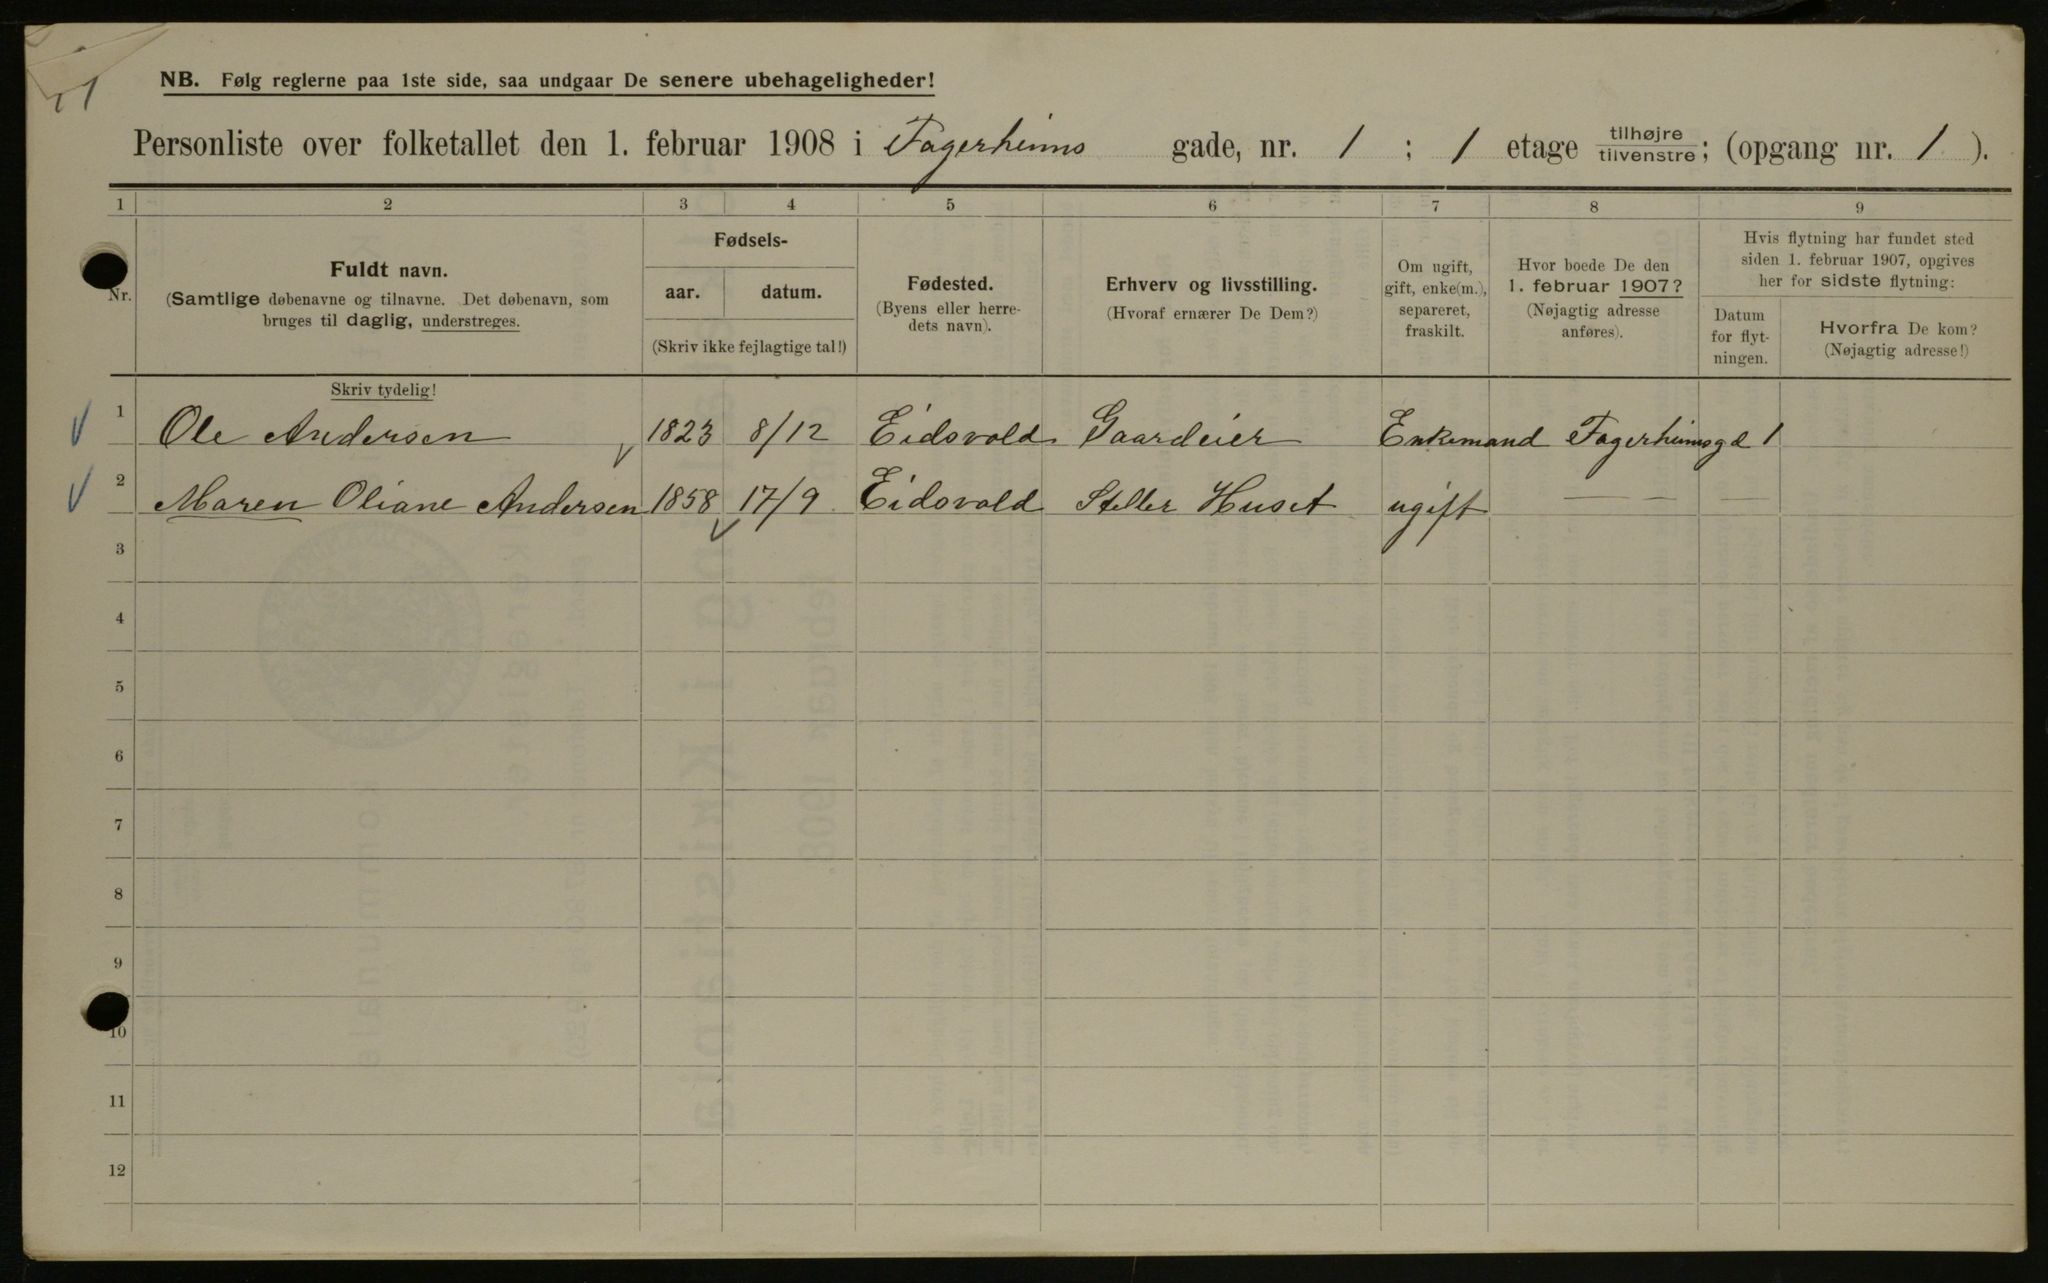 NB. Følg reglerne paa 1ste side, saa undgaar De senere ubehageligheder!
Personliste over folketallet den 1. februar 1908 i Fagerheims gade, nr. 1 ; 1 etage tilhøjre tilvenstre; (opgang nr. 1 ).
1 2 3 4 5 6 7 8 9
Nr.
Fuldt navn.
(Samtlige døbenavne og tilnavne. Det døbenavn, som
bruges til daglig, understreges.
Fødsels-
aar. datum.
(Skriv ikke fejlagtige tal!)
Fødested.
(Byens eller herre-
dets navn).
Erhverv og livsstilling.
(Hvoraf ernærer De Dem?)
Om ugift,
gift, enke(m.),
separeret,
fraskilt.
Hvor boede De den
1. februar 1907?
(Nøjagtig adresse
anføres).
Hvis flytning har fundet sted
siden 1. februar 1907, opgives
her for sidste flytning:
Datum
for flyt-
ningen.
Hvorfra De kom?
(Nøjagtig adresse!)
Skriv tydelig!
1 Ole Andersen 1823 8/12 Eidsvold Gaardeier Enkemand Fagerheimsgd 1
2 Maren Oliane Andersen 1858 17/9 Eidsvold Steller Huset ugift — — —
3
4
5
6
7
8
9
10
11
12